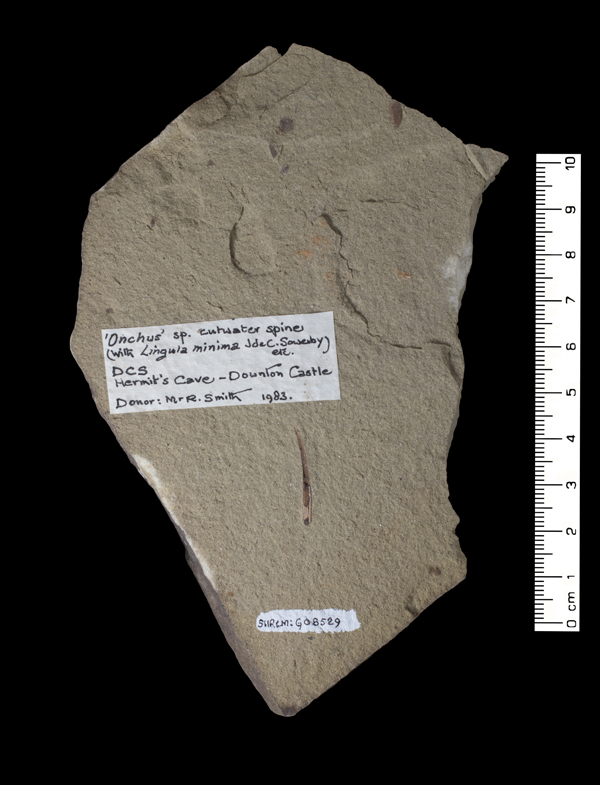 'Onchus' sp. cutwater spines
(with Lingula minima J de C. Sowerby)
etc.
DCS
Hermit's Cave - Downton Castle
Donor: Mr R. Smith 1983.
SHRCM: G08529
10
9
8
7
6
5
4
3
2
1
0 cm